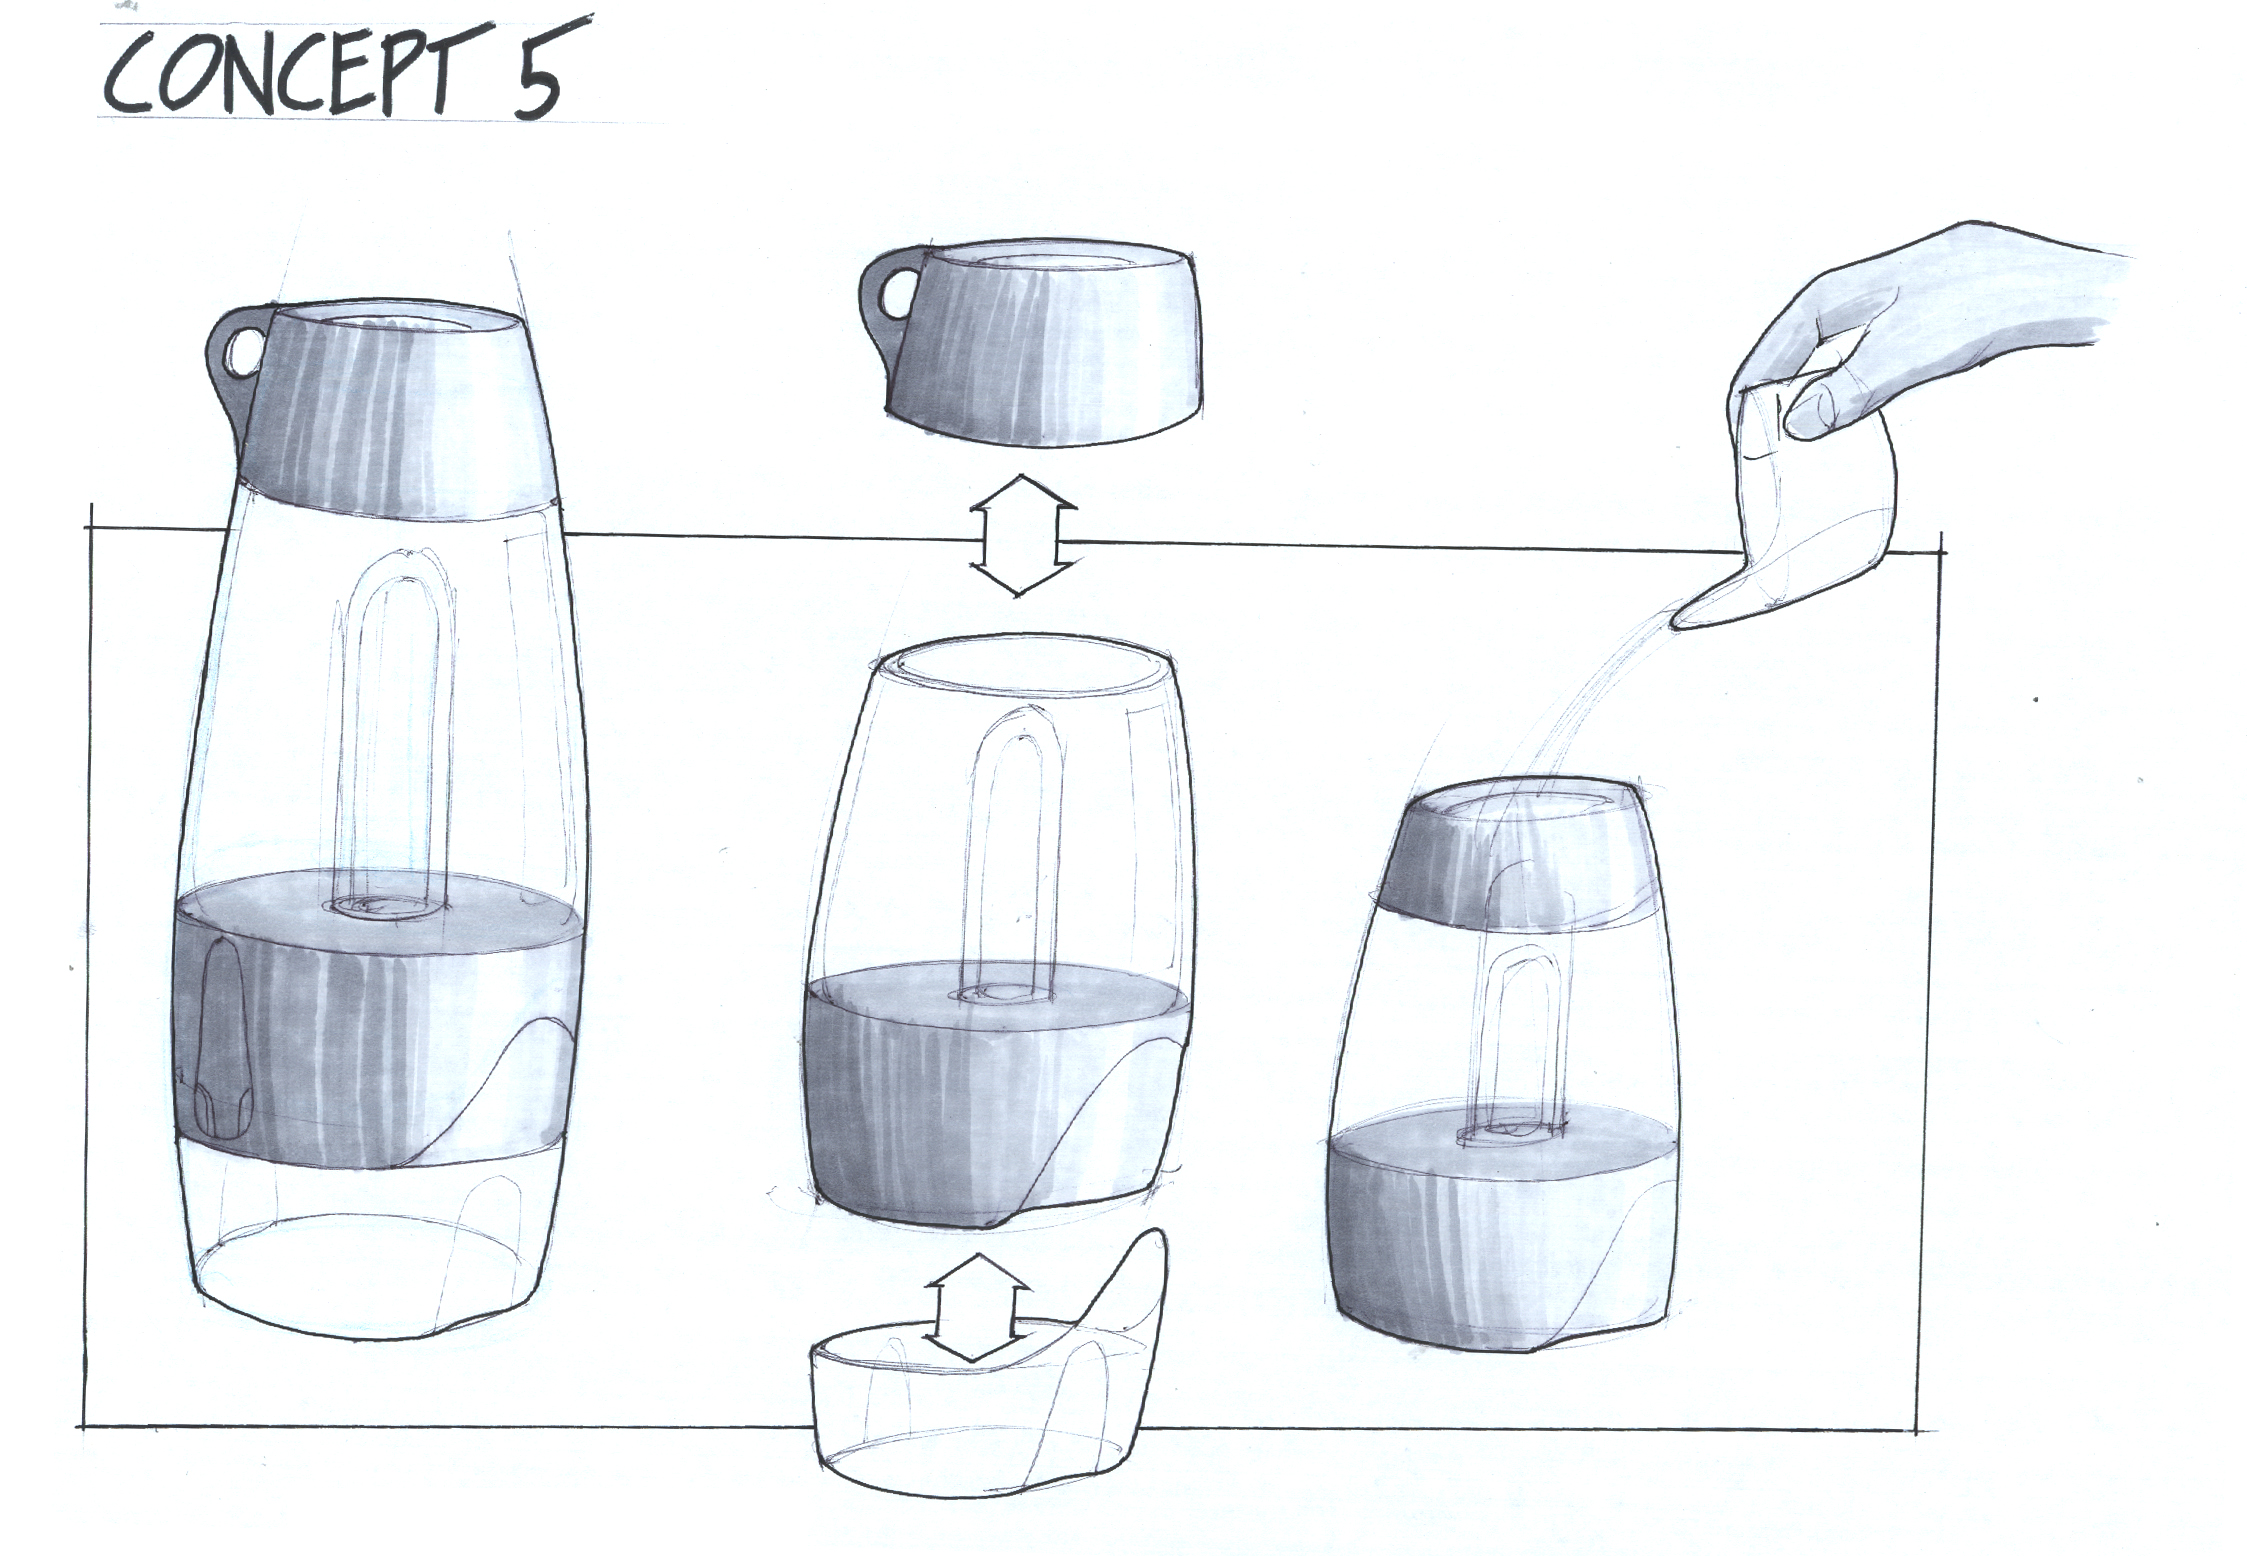 CONCEPT 5